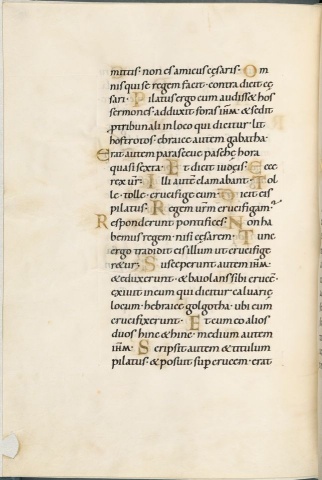 mittis · non es amicus cęsaris · Om
nis qui se regem facit · contradicit cę
sari · Pilatus ergo cum audisset hos
sermones adduxit foras iħm & sedit
ꝓ tribunali in loco qui dicitur lit
hostrotos · ebraice autem gabatha ·
Erat autem parasceue paschę hora
quasi sexta · Et dicit iudęis · Ecce
rex ur̄ · Illi autē clamabant · Tol
le · tolle · crucifige eum · Dicit eis
pilatus · Regem ur̄m crucifigam ·
Responderunt pontifices · Non ha
bemus regem · nisi cęsarem · Tunc
ergo tradidit eis illum ut crucifige
r&ur · Susceperunt autem iħm ·
& eduxerunt · & baiolans sibi crucē ·
exiuit in eum qui dicitur caluarię
locum · hebraice golgotha · ubi eum
crucifixerunt · Et cum eo alios
duos hinc & hinc · medium autem
iħm · Scripsit autem & titulum
pilatus · & posuit sup̄ crucem · erat